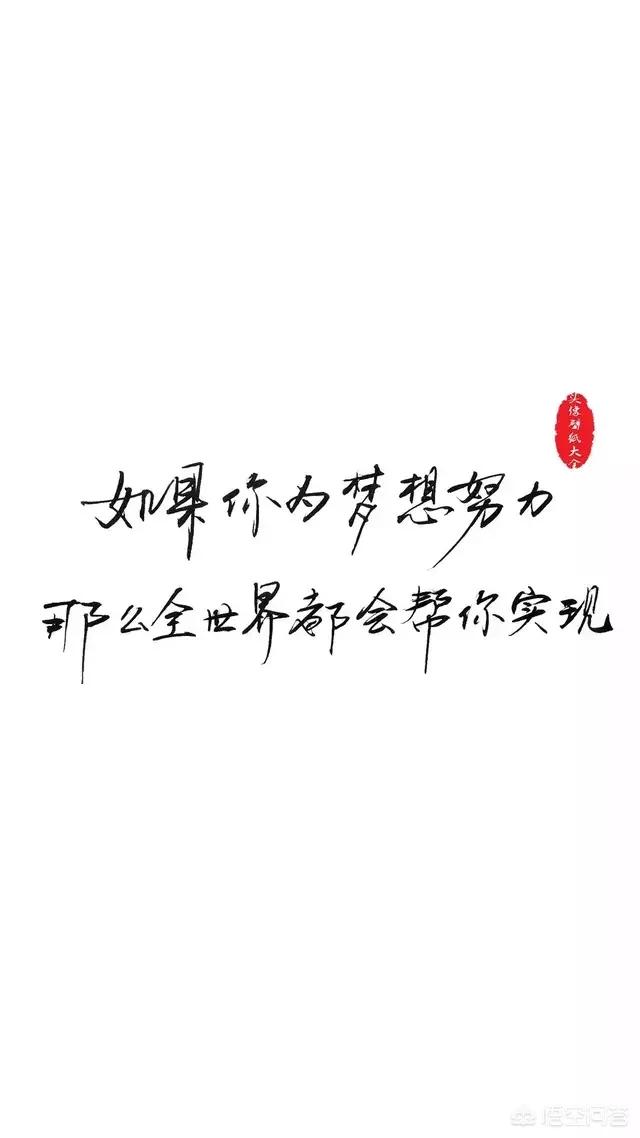 头像壁纸大全
如果你为梦想努力
那么全世界都会帮你实现
悟空问答